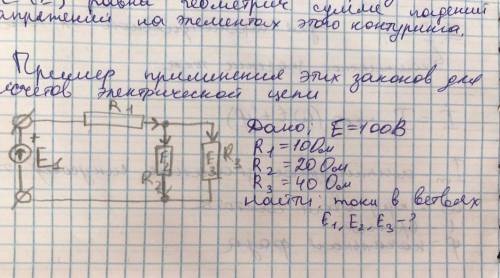 равна геометрич сумме падений
напряжений на элементах этого контуринга.
Пример применения этих законов для
расчетов электрической цепи
R1
+
E1
E2
R2
E3
R3
Дано; E=100В
R1 = 10 Ом
R2 = 20 Ом
R3 = 40 Ом
найти; токи в ветвях
E1, E2, E3 - ?